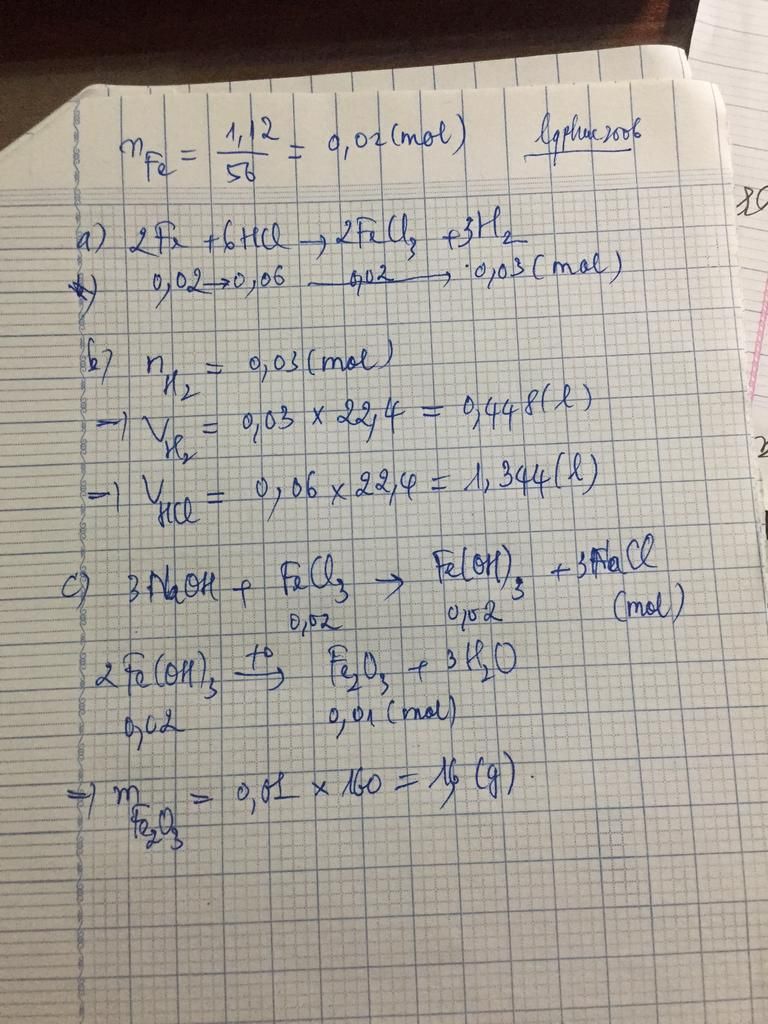 n_Fe = 1,12/56 = 0,02 (mol)
a) 2Fe + 6HCl → 2FeCl₃ + 3H₂
0,02 → 0,06 → 0,02 → 0,03 (mol)
b) n_H₂ = 0,03 (mol)
→ V_H₂ = 0,03 × 22,4 = 0,448 (l)
→ V_HCl = 0,06 × 22,4 = 1,344 (l)
c) 3NaOH + FeCl₃ → Fe(OH)₃ + 3NaCl
0,02 0,02 (mol)
2Fe(OH)₃ →(t°) Fe₂O₃ + 3H₂O
0,02 0,01 (mol)
⇒ m_Fe₂O₃ = 0,01 × 160 = 1,6 (g).